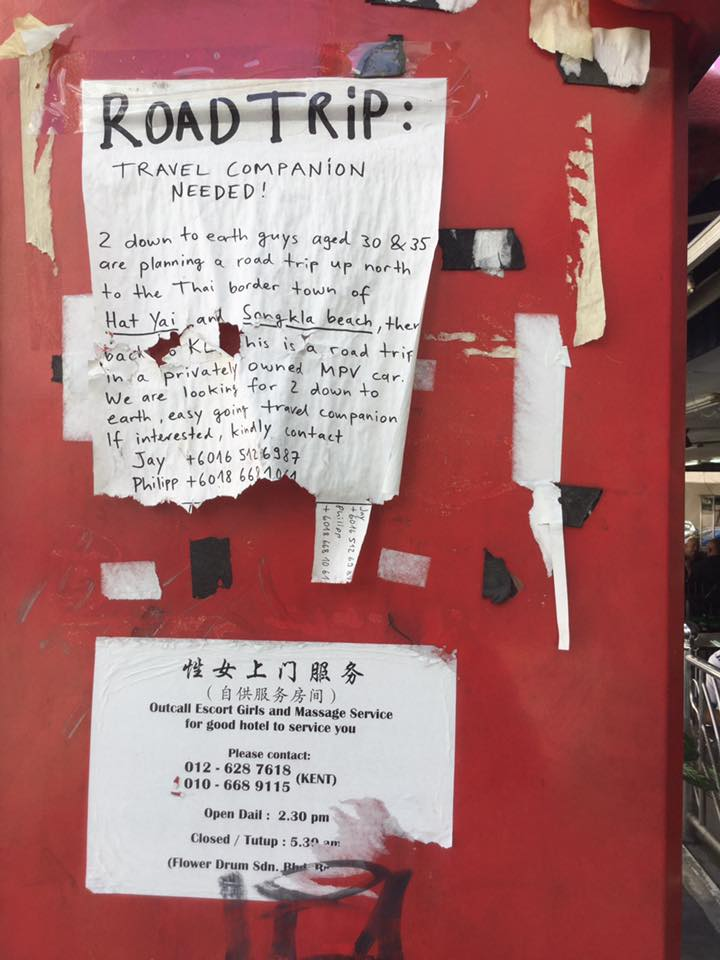 ROAD TRIP:
TRAVEL COMPANION
NEEDED!
2 down to earth guys aged 30 & 35
are planning a road trip up north
to the Thai border town of
Hat Yai and Songkla beach, then
back to KL. This is a road trip
in a privately owned MPV car.
We are looking for 2 down to
earth, easy going travel companion
If interested, kindly contact
Jay +6016 512 6987
Philipp +6018 668 1061
Jay
+6016 512 6987
Philipp
+6018 668 1061
性女上门服务
(自供服务房间)
Outcall Escort Girls and Massage Service
for good hotel to service you
Please contact:
012 - 628 7618
010 - 668 9115 (KENT)
Open Dail : 2.30 pm
Closed / Tutup : 5.30 am
(Flower Drum Sdn. Bhd.